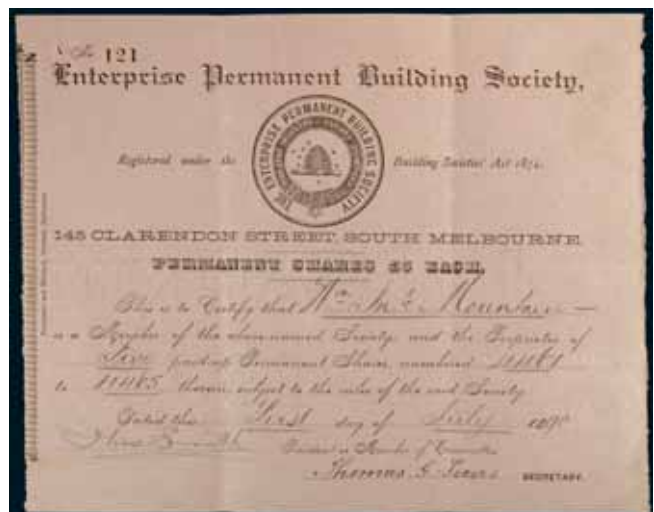 No 121
Enterprise Permanent Building Society,
THE ENTERPRISE PERMANENT BUILDING SOCIETY
Registered under the Building Societies' Act 1874.
145 CLARENDON STREET, SOUTH MELBOURNE
PERMANENT SHARES £5 EACH.
This is to Certify that Wm Mc Mountain
is a Member of the above-named Society and the Proprietor of
Five paid up Permanent Shares numbered 11481
to 11485 therein subject to the rules of the said Society
Dated this First day of July 1890
President or Member of Committee
Thomas G. SECRETARY.